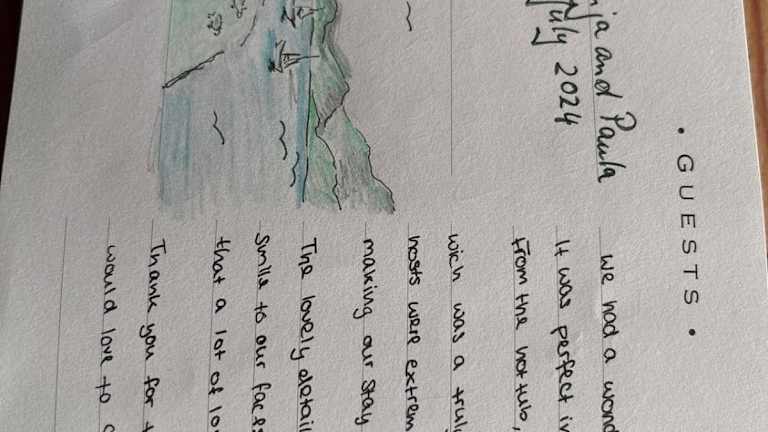 • GUESTS •
nja and Paula
July 2024
We had a wond
It was perfect in
from the hot tub,
wich was a truly
hosts were extrem
making our stay
The lovely detail
smile to our faces
that a lot of lo
Thank you for t
would love to c